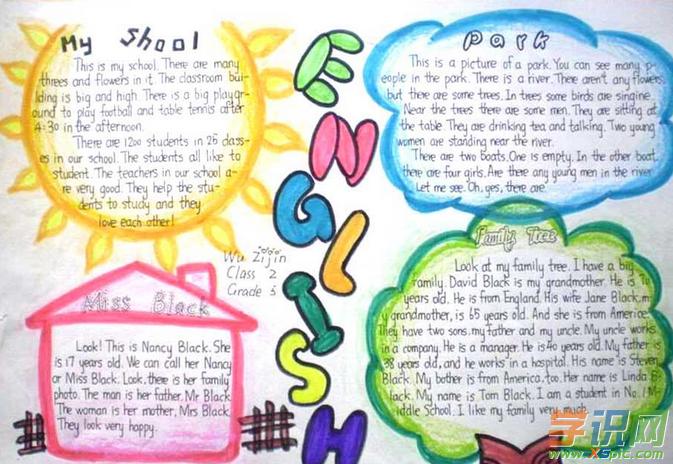 My Shool
This is my school. There are many
threes and flowers in it. The classroom bui-
lding is big and high. There is a big playgr-
ound to play football and table tennis after
4:30 in the afternoon.
There are 1200 students in 25 class-
es in our school. The students all like to
student. The teachers in our school a-
re very good. They help the stu-
dents to study and they
love each other!
ENGLISH
Park
This is a picture of a park. You can see many p-
eople in the park. There is a river. There aren't any flowers,
but there are some trees. In trees some birds are singine.
Near the trees there are some men. They are sitting at
the table. They are drinking tea and talking. Two young
women are standing near the river.
There are two boats. One is empty. In the other boat,
there are four girls. Are there any young men in the river
Let me see. Oh, yes, there are.
Wu Zijin
Class 2
Grade 5
Miss Black
Look! This is Nancy Black. She
is 17 years old. We can call her Nancy
or Miss Black. Look, there is her family
photo. The man is her father, Mr Black.
The woman is her mother, Mrs Black.
They look very happy.
Family Tree
Look at my family tree. I have a big
family. David Black is my grandmother. He is 70
years old. He is from England. His wife Jane Black, my
grandmother, is 65 years old. And she is from Americe.
They have two sons, my father and my uncle. My uncle works
in a company. He is a manager. He is 40 years old. My father is
38 years old, and he works in a hospital. His name is Steven
Black. My bother is from America, too. Her name is Linda B-
lack. My name is Tom Black. I am a student in No.1 Mi-
ddle School. I like my family very much.
学识网
www.XSpic.com